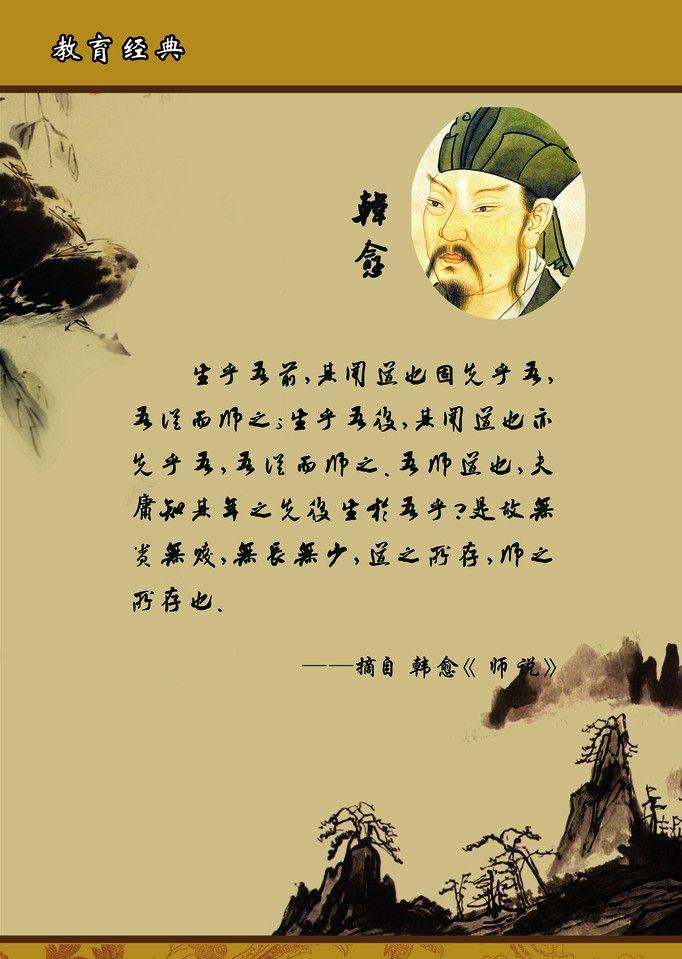 教育经典
韓愈
生乎吾前,其聞道也固先乎吾,
吾從而師之;生乎吾後,其聞道也亦
先乎吾,吾從而師之.吾師道也,夫
庸知其年之先後生於吾乎?是故無
贵無賤,無長無少,道之所存,師之
所存也.
——摘自 韩愈《 师说》